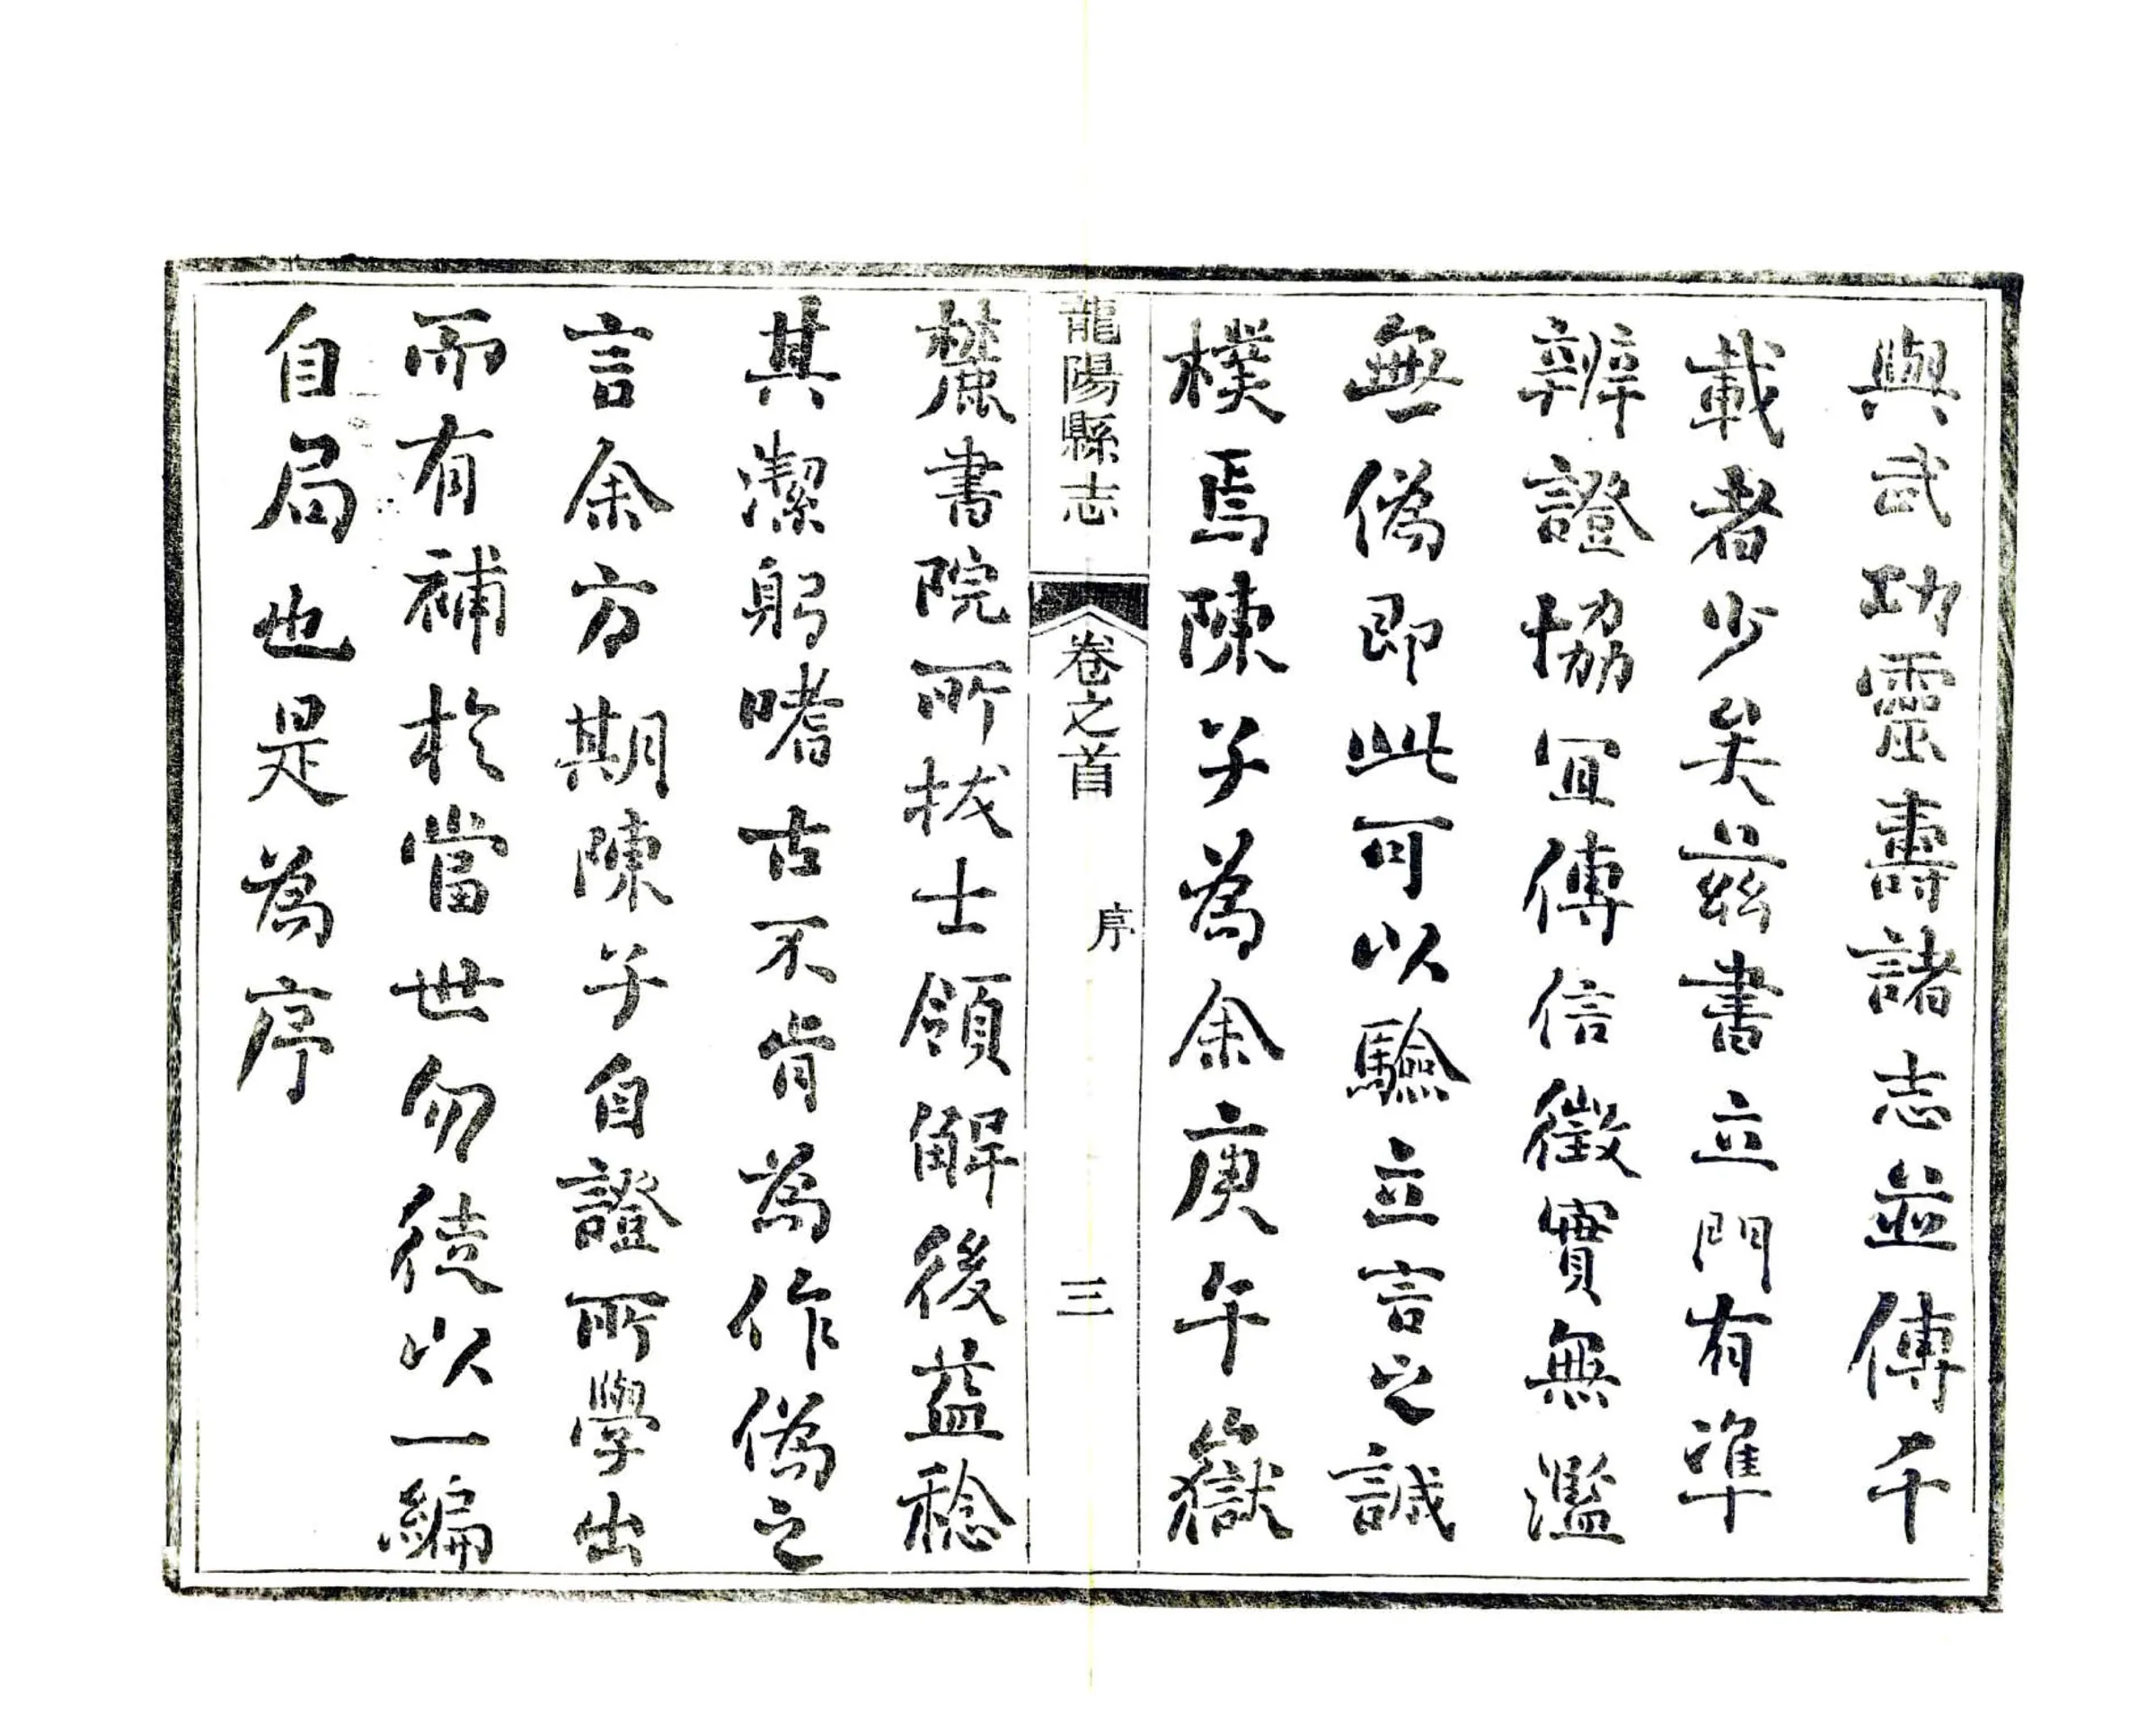 與武功靈壽諸志並傳千
載者少矣茲書立門有準
辨證協宜傳信徵實無濫
無偽即此可以驗立言之誠
樸焉陳子為余庚午嶽
龍陽縣志
卷之首
序
三
麓書院所拔士領解後益稔
其潔躬嗜古不肯為作偽之
言余方期陳子自證所學出
而有補於當世勿徒以一編
自局也是為序